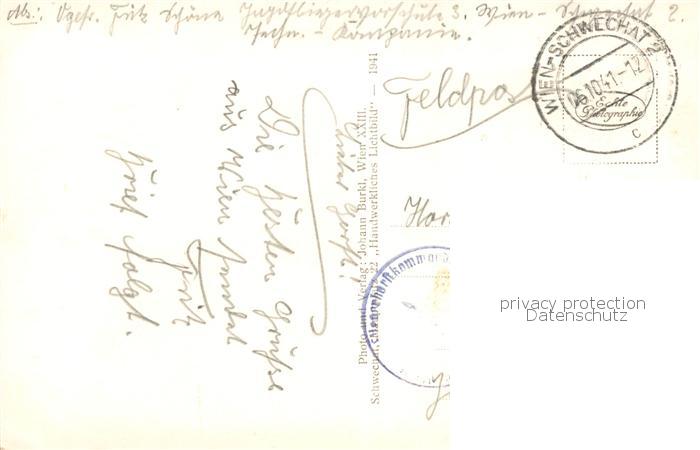 Abs: Ogefr. Fritz Schöne Jagdfliegervorschule 3. Wien - Schwechat 2.
Techn. - Kompanie.
WIEN-SCHWECHAT 2
06.10.41.-12
c
Echte
Photographie
Feldpost
Lieber Horst!
Die besten Grüsse
aus Wien sendet
Fritz
Brief folgt.
Photo und Verlag: Johann Burkl, Wien XXIII.
Schwechat, 22 „Handwerkliches Lichtbild" — 1941
Hor
Fliegerhorstkommand
privacy protection
Datenschutz